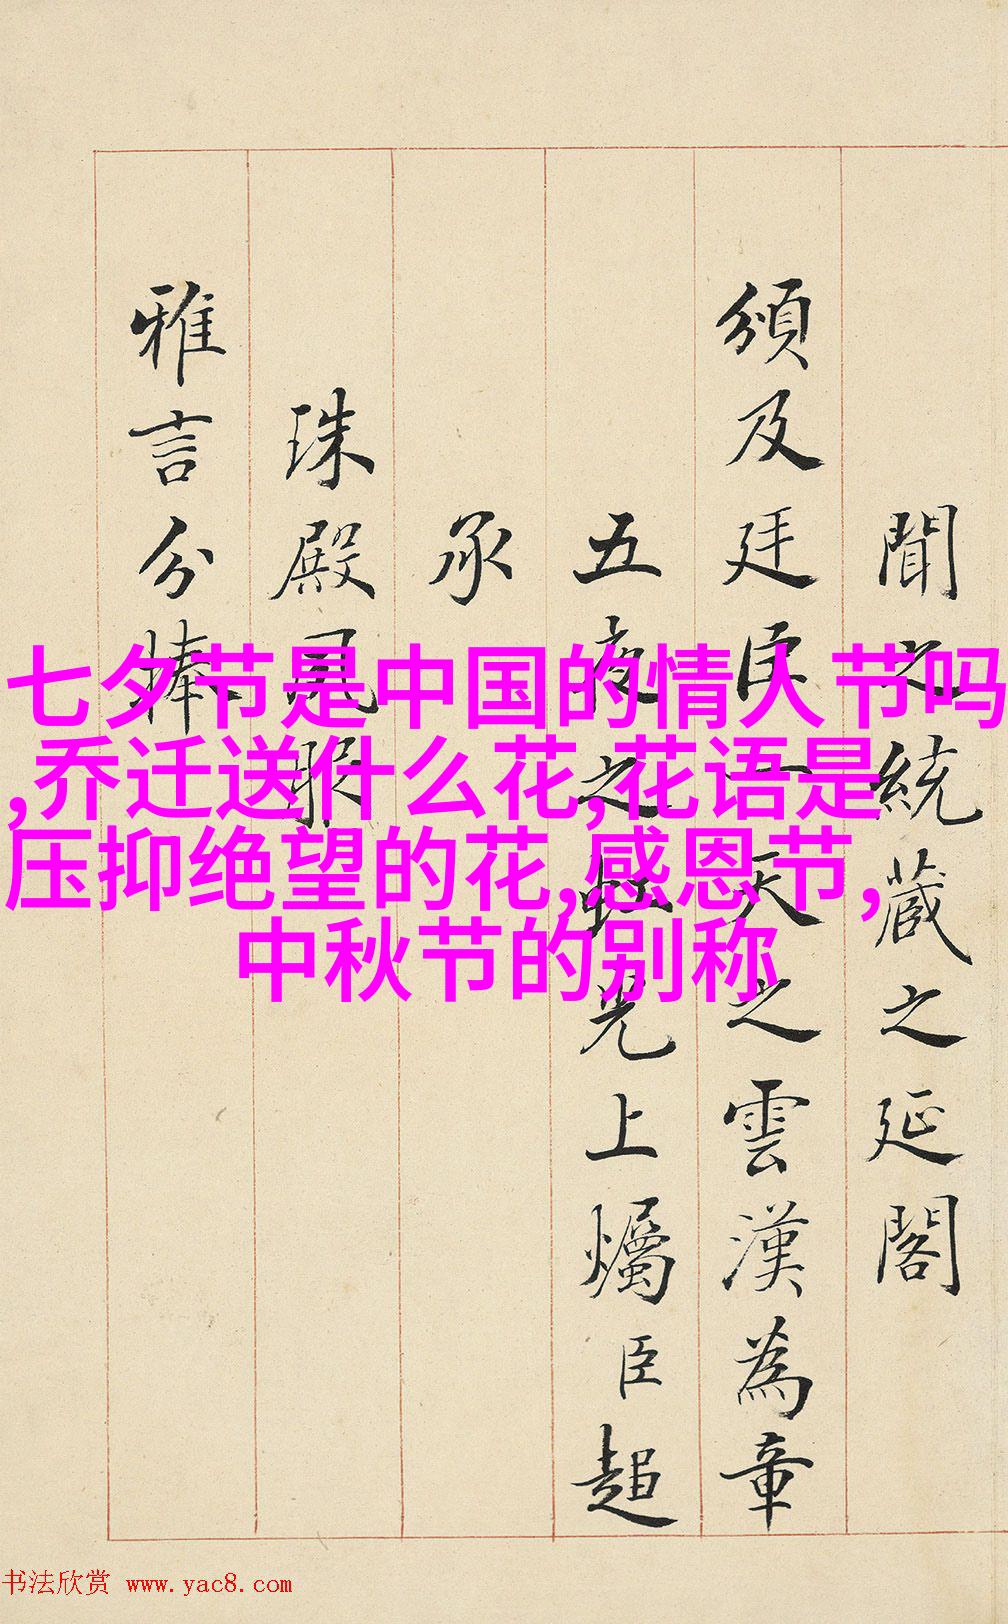 聞之統蔵之延閣
頒及廷臣一天之雲漢為章
五夜之虹光上燭臣超
承
珠殿風眼
雅言分捧
七夕节是中国的情人节吗
,乔迁送什么花,花语是
压抑绝望的花,感恩节,
中秋节的别称
书法欣赏 www.yac8.com